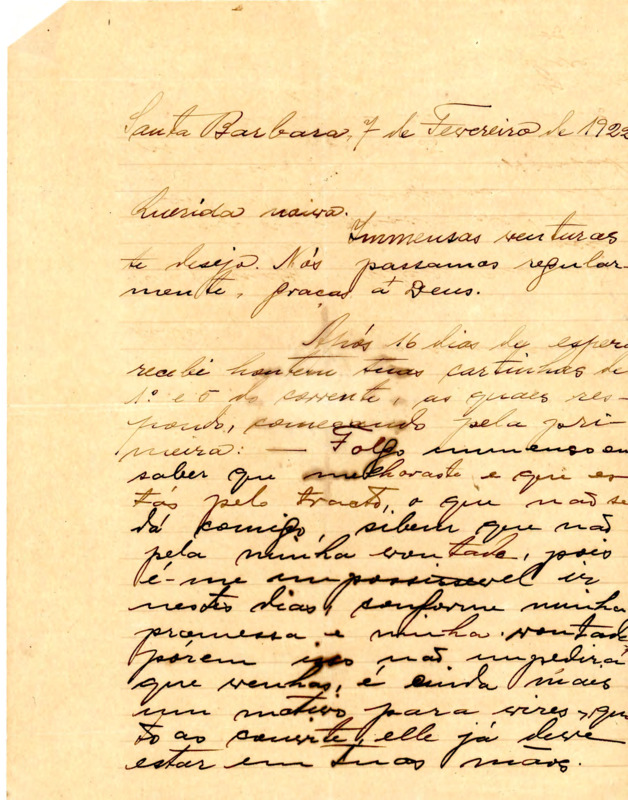 Santa Barbara, 7 de Fevereiro de 1922
Querida noiva.
Immensas venturas
te desejo. Nós passamos regular-
mente, graças á Deus.
Após 16 dias de espera
recebi hontem tuas cartinhas de
1º e 5 do corrente, as quaes res-
pondo, começando pela pri-
meira: — Folgo immenso em
saber que melhoraste e que es-
tás pelo tracto, o que não se
dá comigo, sibem que não
pela minha vontade, pois
é-me impossivel ir
nestes dias, conforme minha
promessa e minha vontade
pórem isso não impedirá
que venhas, é ainda mais
um motivo para vires, quan
to ao convite, elle já deve
estar em tuas mãos.